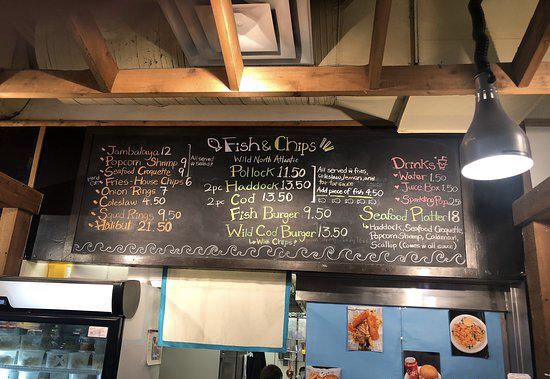 Jambalaya 12
Popcorn Shrimp 9
Seafood Croquette 9
Fries-House Chips 6
Onion Rings 7
Coleslaw 4.50
Squid Rings 9.50
Halibut 21.50
All served
Fish & Chips
Wild North Atlantic
Pollock 11.50
2pc Haddock 13.50
2pc Cod 13.50
Fish Burger 9.50
Wild Cod Burger 13.50
With Chips!
All served in fries,
coleslaw, lemon, and
tar tar sauce
Add piece of fish 4.50
Drinks
Water 1.50
Juice Box 1.50
Sparkling Pop 2.50
Seafood Platter 18
Haddock, Seafood Croquette
Popcorn Shrimp, Calamari,
Scallop (Comes in all sauce)